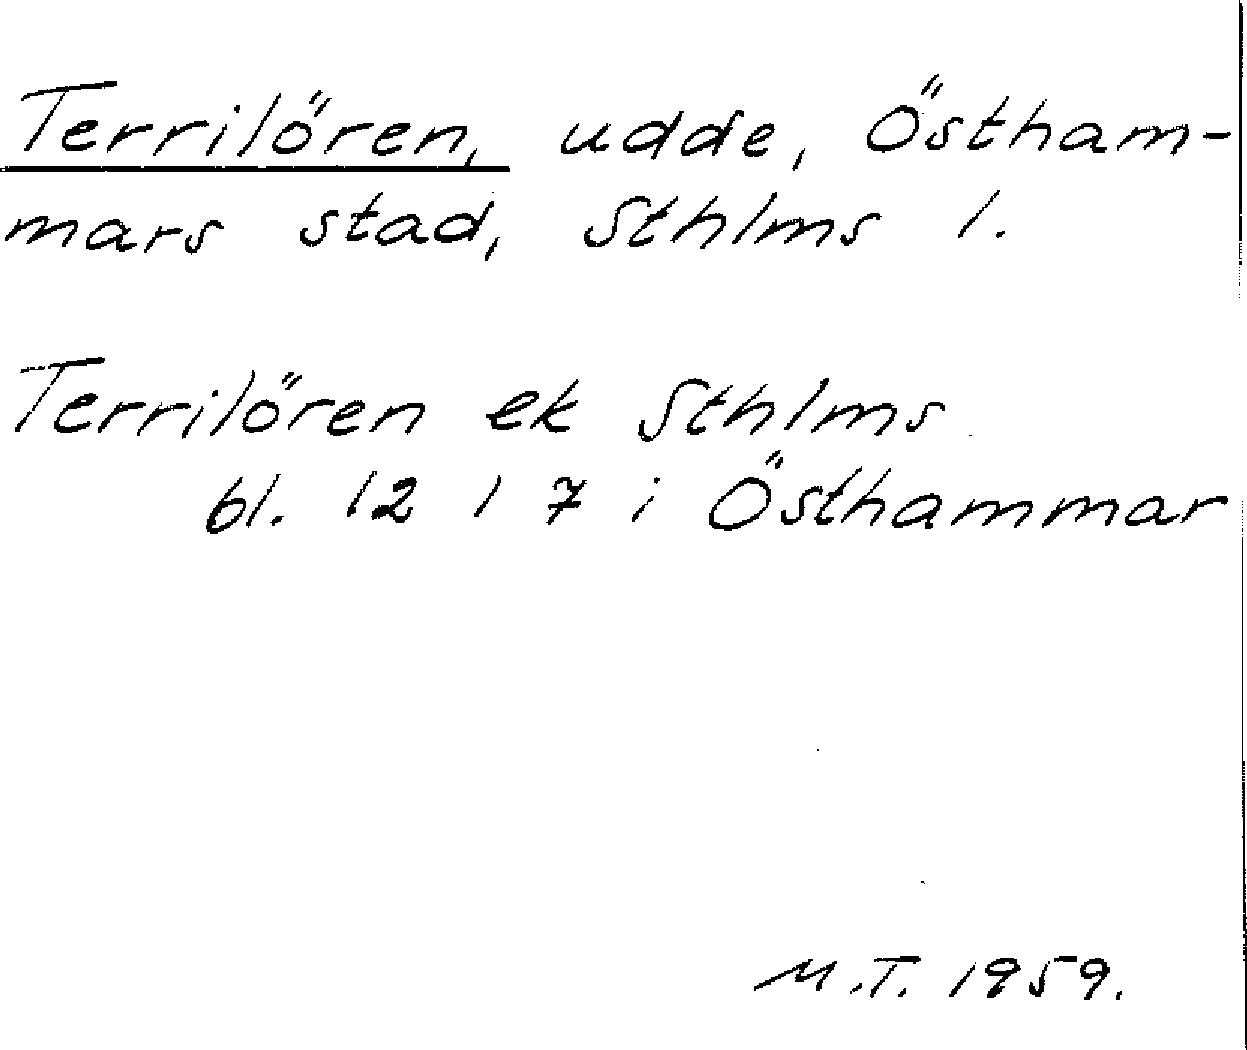 Terrilören, udde, Östham-
mars stad, Sthlms l.
Terrilören ek Sthlms
bl. 12 I 7 i Östhammar
M.T. 1959.